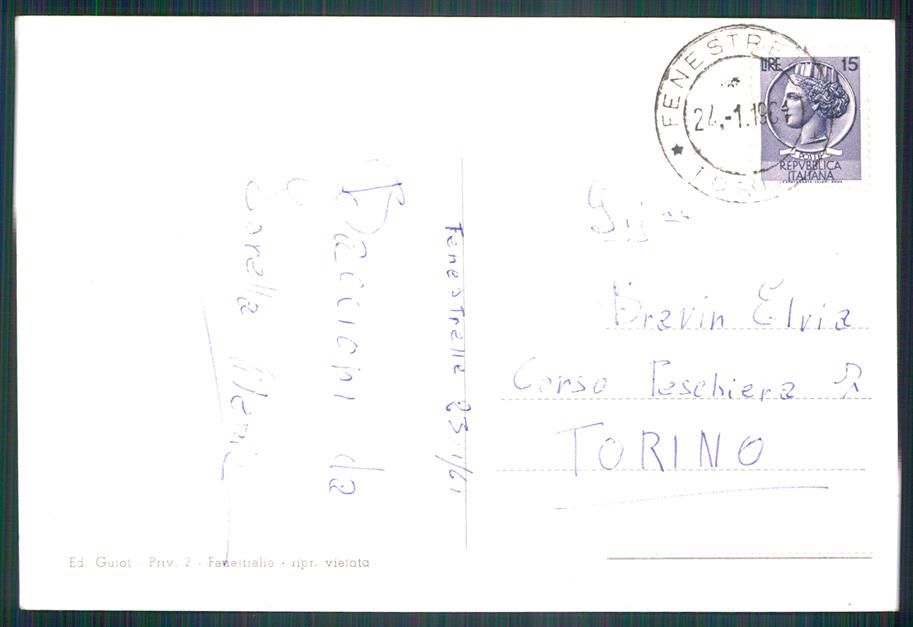 FENESTRE
24.-1.196
TOR
LIRE 15
POSTE
REPVBBLICA
ITALIANA
Fenestrelle 23/1/61
Baccioni da
Bravin Elvia
Corso Peschiera
TORINO
Ed. Guiot - Priv. 2 - Fenestrelle - ripr. vietata